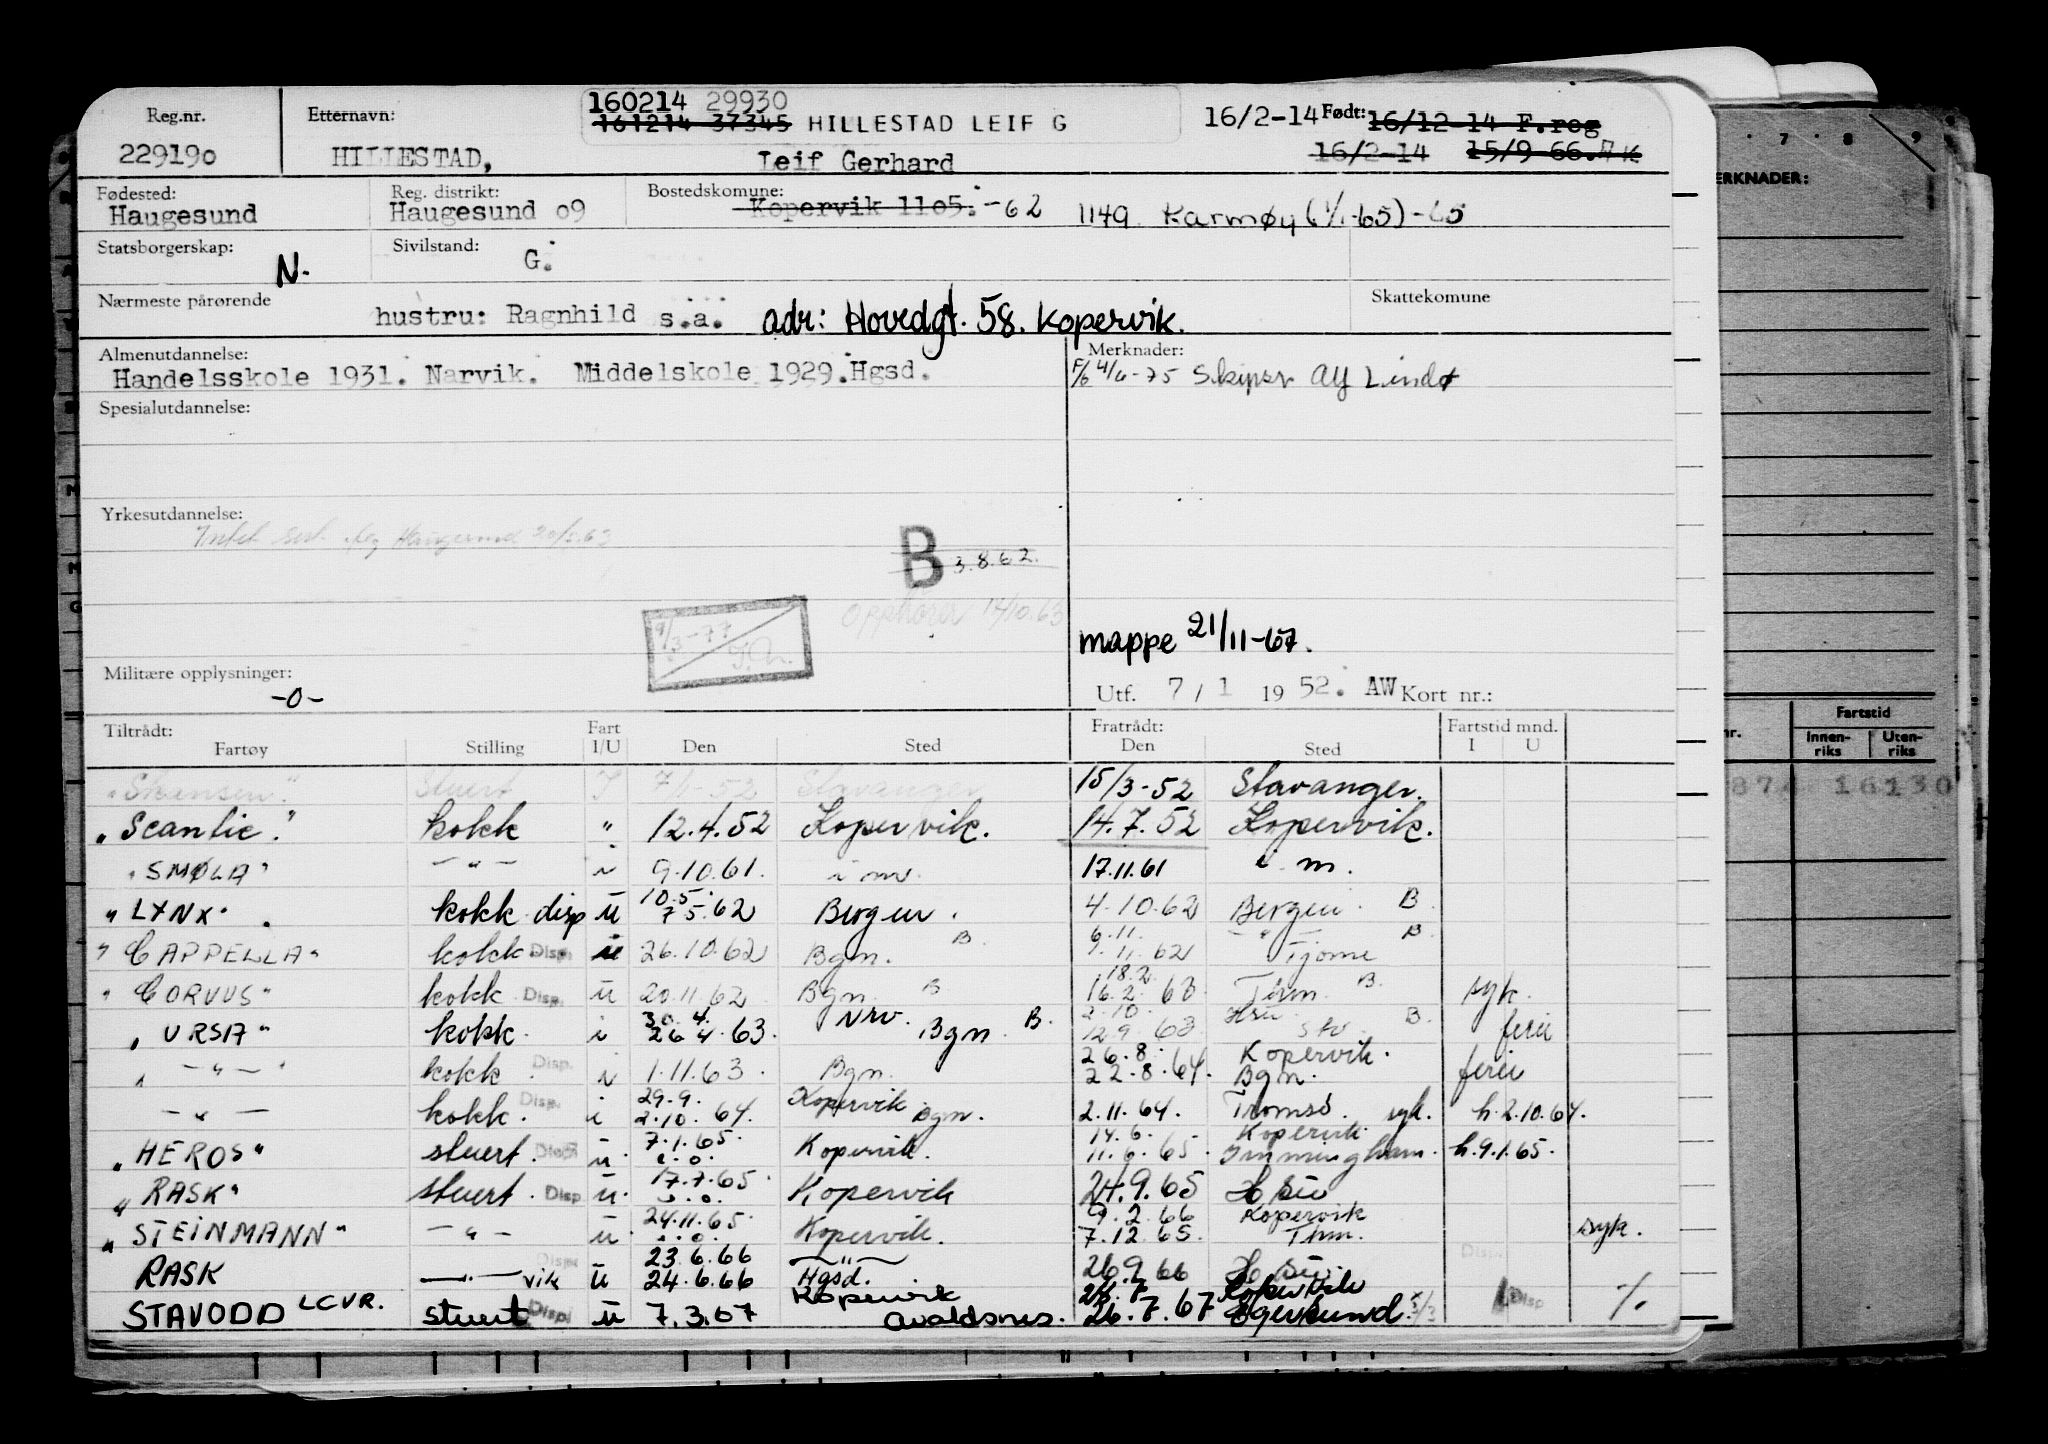 Reg.nr. Etternavn: 160214 29930
161214 37345 HILLESTAD LEIF G 16/2-14 Født: 16/12-14 F.reg
229190 HILLESTAD, Leif Gerhard 16/2-14 15/9-66.
Fødested: Reg. distrikt: Bostedskomune:
Haugesund Haugesund 09 Kopervik 1105. -62 1149 Karmøy (1/1-65) -65
Statsborgerskap: Sivilstand:
N. G.
Nærmeste pårørende Skattekomune
hustru: Ragnhild s.a. adr: Hovedgt. 58. Kopervik.
Almenutdannelse: Merknader:
Handelsskole 1931. Narvik. Middelskole 1929. Hgsd. 4/6-75 Skipsr Alf Lindø
Spesialutdannelse:
Yrkesutdannelse:
Haugesund
B 3.8.62.
Opphører 14/10.63
9/3-77
mappe 21/11-67.
Militære opplysninger:
-0-
Utf. 7/1 1952. AW Kort nr.:
Tiltrådt: Fart Fratrådt: Fartstid mnd.
Fartøy Stilling I/U Den Sted Den Sted I U
"Skansen" Stuert I 7/1-52 Stavanger 15/3-52 Stavanger.
"Scantic" kokk " 12.4.52 Kopervik. 14.7.52 Kopervik.
"SMØLA" - " - i 9.10.61. i m. 17.11.61 i m.
"LYNX" kokk disp u 10.5. 7 5.62 Bergen. 4.10.62 Bergen. B
"CAPPELLA" kokk Disp. u 26.10.62 Bgn. B. 6.11. - " - B. 7.11.62 Tjøme
"CORVUS" kokk Disp. u 20.11.62 Bgn. B 18.2. 16.2.63 Thm. B. syk.
"URSA" kokk. i 30.4. 26 4.63. Nrv. Bgn. B. 2.10. 12.9.63 Stv B. ferie
" - " - " kokk Disp. i 1.11.63. Bgn. 26.8. Kopervik. 22.8.64. Bgn. ferie
- " - kokk. Disp. i 29.9. 2.10.64. Kopervik Bgn. 2.11.64. Tromsø. syk. h.2.10.64.
"HEROS" stuert. Disp u. 7.1.65. s.o. Kopervik. 14.6. Kopervik 11.6.65. Immingham. h.9.1.65.
"RASK" stuert. Disp u. 17.7.65. s.o. Kopervik 24.9.65
"STEINMANN" - " - u. 24.11.65. s.o. Kopervik. 9.2.66 Kopervik 7.12.65. Thm. syk.
RASK - " - vik Disp u 23.6.66 - " - 24.6.66 Hgsd. 26.9 66 Disp.
STAVODD LCVR. stuert Disp. u 7.3.67 Kopervik Avaldsnes. 24.7 Kopervik 26.7.67 Egersund. Disp %
7 8 9
MERKNADER:
nr. Fartstid
Innen-riks Uten-riks
874 16130